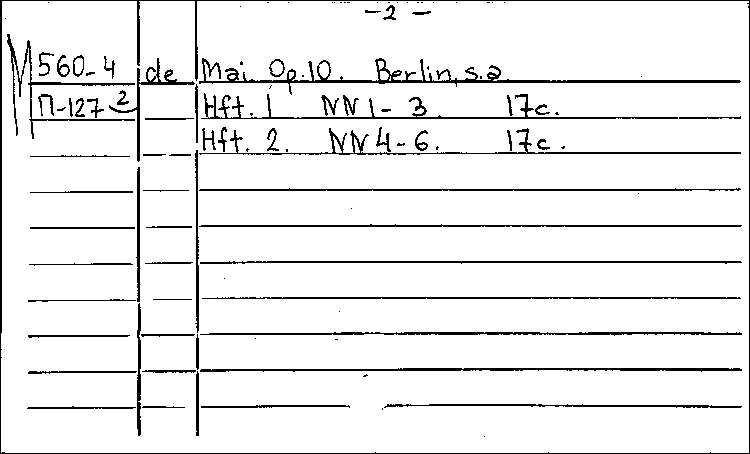 -2-
М 560-4 de Mai. Op.10. Berlin, s.a.
П-127 2 Hft. 1 NN 1-3. 17c.
Hft. 2. NN 4-6. 17c.